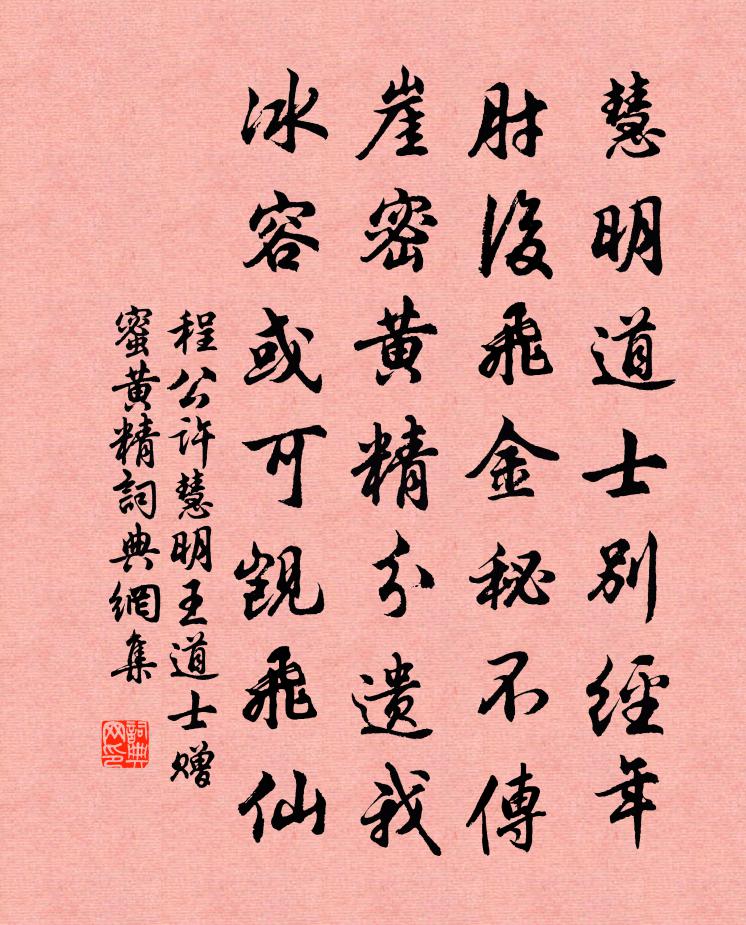 慧明道士别經年
肘後飛金秘不傳
崖密黄精分遗我
冰容或可覬飛仙
程公许慧明王道士赠
蜜黄精詞典網集
詞典
网印